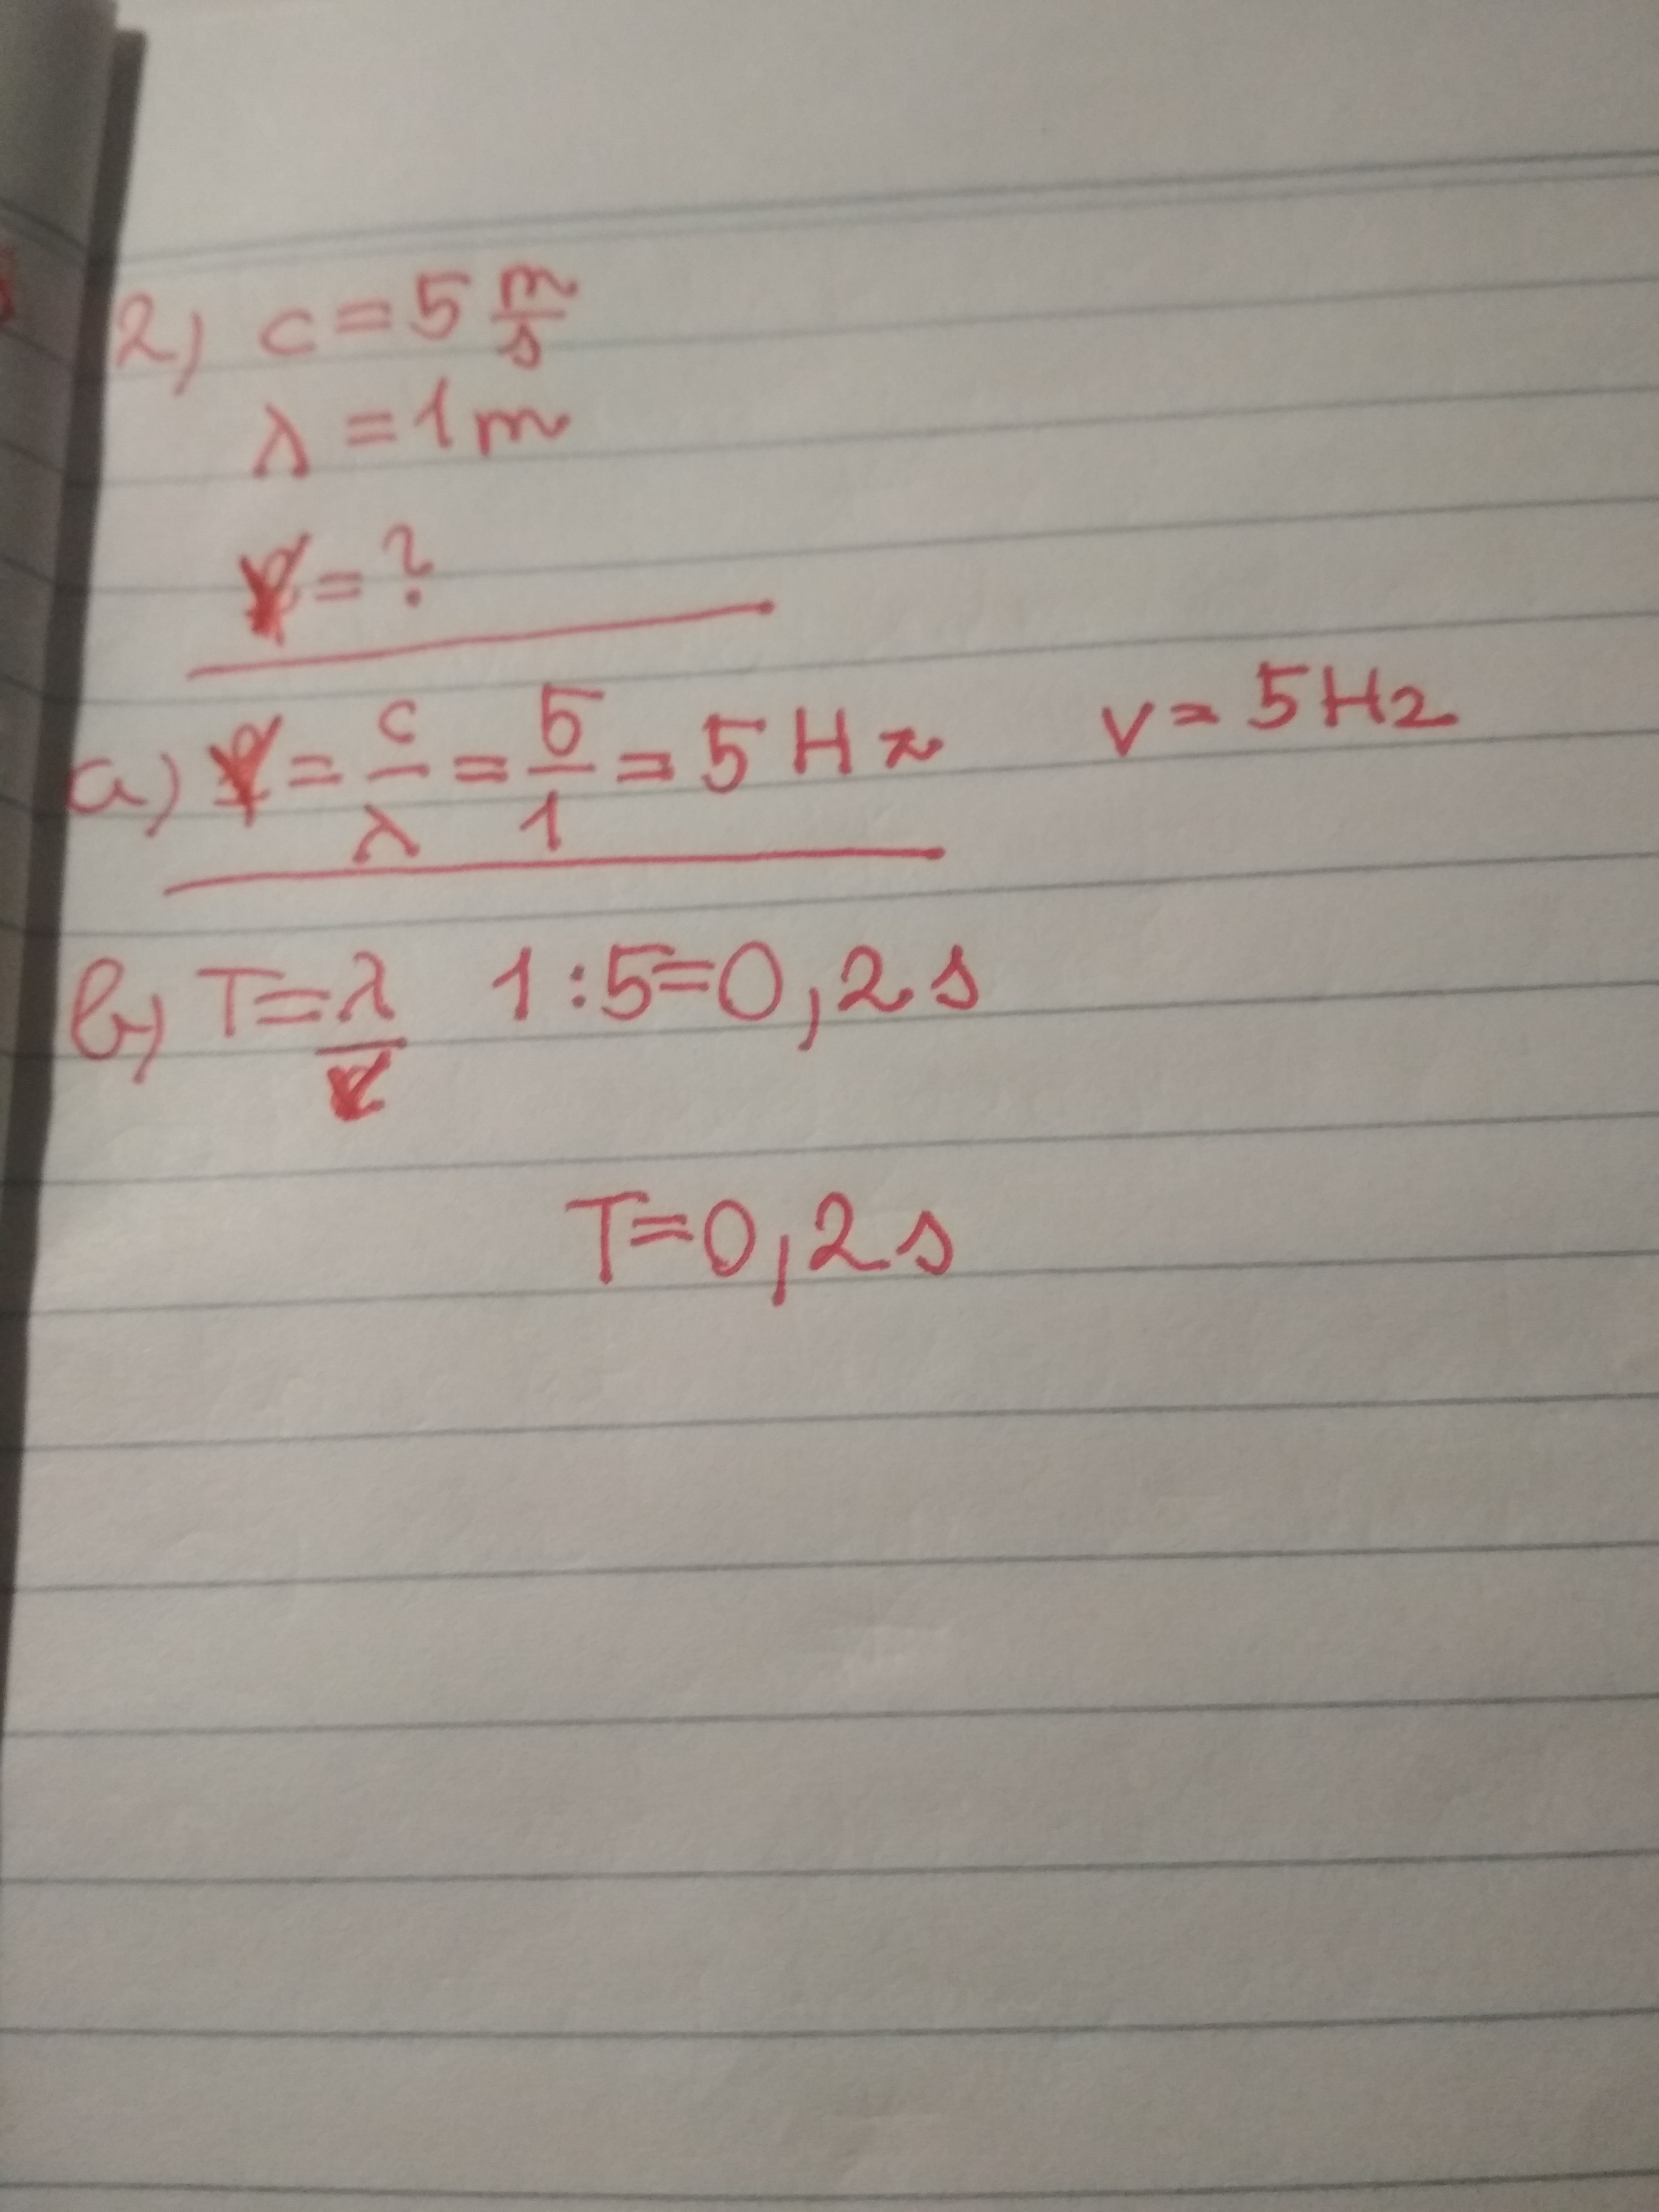 2) c = 5 m/s
λ = 1 m
= ?
a) = c/λ = 5/1 = 5 Hz v = 5 Hz
b) T = λ/ 1 : 5 = 0,2 s
T = 0,2 s